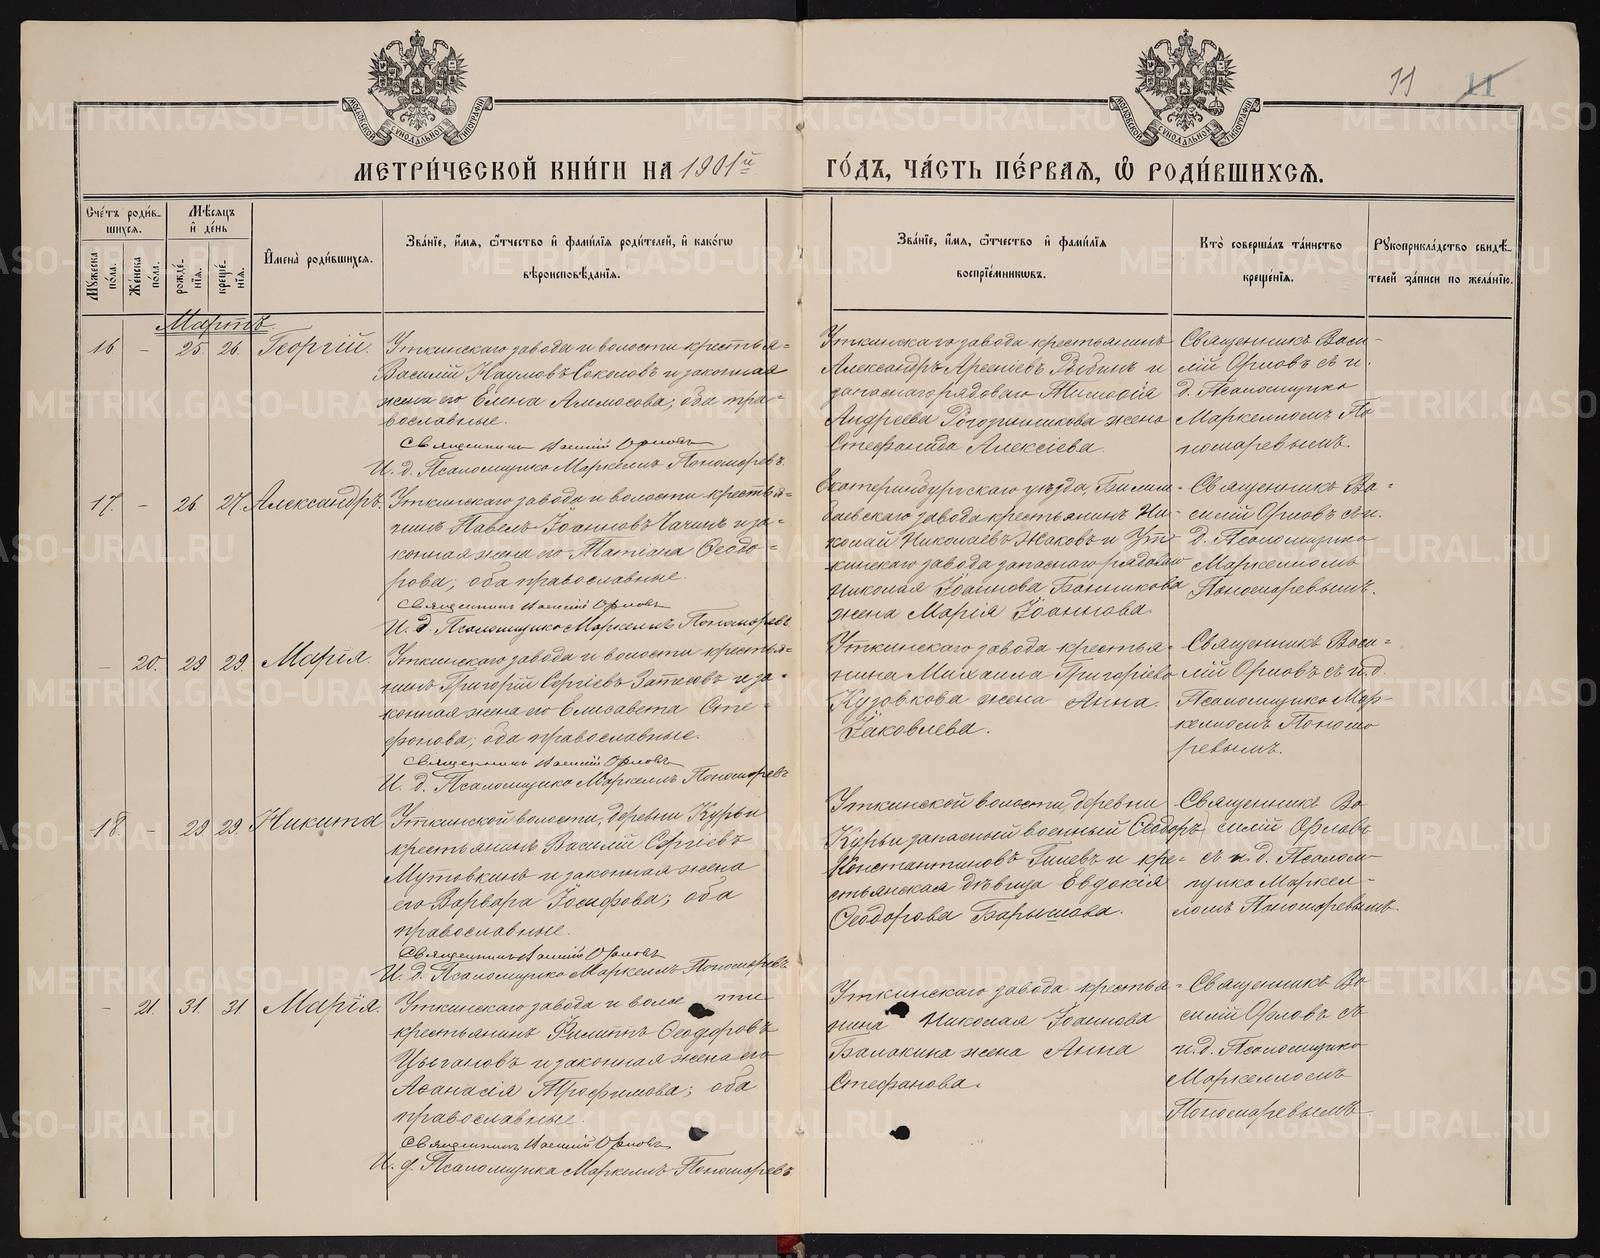 11
МЕТРИ́ЧЕСКОЙ КНИ́ГИ НА 1901й ГО́ДЪ, ЧА́СТЬ ПЕ́РВАЯ, Ѽ РОДИ́ВШИХСЯ.
Сче́тъ роди́в-
шихся.
Му́жеска по́ла.
Же́нска по́ла.
Мѣ́сяцъ
и҆ де́нь
рожде́-
нїѧ.
креще́-
нїѧ.
И҆мена̀ роди́вшихся.
Зва́нїе, и҆́мя, ѻ҆́тчество и҆ фами́лїя роди́телей, и҆ како́гѡ
вѣроисповѣ́данїя.
Зва́нїе, и҆́мя, ѻ҆́тчество и҆ фами́лїя
воспрїе́мниковъ.
Кто̀ соверша́лъ та́инство
креще́нїя.
Рꙋкоприкла́дство свидѣ́-
телей за́писи по жела́нїю.
Мартъ
16 - 25 26. Георгій.
Уткинскаго завода и волости крестья=
Василій Наумовъ Соколовъ и законная
жена его Елена; оба пра=
вославные.
Священникъ Василій Орловъ
И. д. Псаломщика Маркеллъ Пономаревъ
Уткинскаго завода крестьянинъ
Александръ Арсеніевъ и
запаснаго рядоваго Тимофія
Андреева Рогозинникова жена
Стефанида Алексіева.
Священникъ Васи-
лій Орловъ съ и.
д. Псаломщика
Маркелломъ По
номаревымъ.
17. - 26. 27. Александръ.
Уткинскаго завода и волости крестья=
нинъ Павелъ Іоанновъ и за=
конная жена его Татіана Ѳеодо=
рова; оба православные.
Священникъ Василій Орловъ
И. д. Псаломщика Маркеллъ Пономаревъ
Екатеринбургскаго уѣзда, Билим=
баевскаго завода крестьянинъ Ни-
колай Николаевъ и Ут=
кинскаго завода запаснаго рядоваго
Николая Іоаннова Банникова
жена Марія Іоаннова.
Священникъ Ва=
силій Орловъ съ и.
д. Псаломщика
Маркелломъ
Пономаревымъ.
- 20. 29. 29. Марія.
Уткинскаго завода и волости крестья=
нинъ Григорій Сергіевъ и за=
конная жена его Елисавета Сте=
фанова; оба православные.
Священникъ Василій Орловъ
И. д. Псаломщика Маркеллъ Пономаревъ
Уткинскаго завода крестья=
нина Михаила Григоріева
Кузовкова жена Анна
Іаковлева.
Священникъ Васи=
лій Орловъ съ и. д.
Псаломщика Мар-
келломъ Понома
ревымъ.
18. - 29 29. Никита
Уткинской волости, деревни Курьи
крестьянинъ Василій Сергіевъ
Мутовкинъ и законная жена
его Варвара Іосифова; оба
православные.
Священникъ Василій Орловъ
И. д. Псаломщика Маркеллъ Пономаревъ
Уткинской волости, деревни
Курьи запасный военный Ѳеодоръ
Константиновъ Гилевъ и кре=
стьянская дѣвица Евдокія
Ѳеодорова Барышова.
Священникъ Ва
силій Орловъ
съ и. д. Псалом-
щика Маркел-
ломъ Пономаревымъ.
- 21. 31. 31 Марія.
Уткинскаго завода и волости
крестьянинъ Филиппъ Ѳеодоровъ
Цыгановъ и законная жена его
Аѳанасія Трофимова; оба
православные.
Священникъ Василій Орловъ
И. д. Псаломщика Маркеллъ Пономаревъ
Уткинскаго завода крестья=
нина Николая Іоаннова
Балакина жена Анна
Стефанова.
Священникъ Ва
силій Орловъ съ
и. д. Псаломщика
Маркелломъ
Пономаревымъ
METRIKI.GASO-URAL.RU